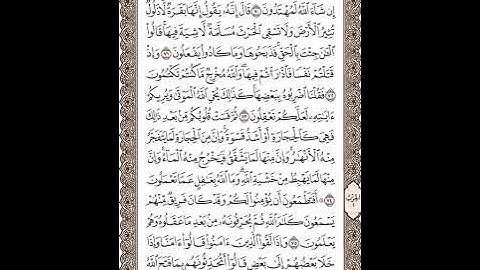 إِن شَآءَ ٱللَّهُ لَمُهْتَدُونَ ٧٠ قَالَ إِنَّهُۥ يَقُولُ إِنَّهَا بَقَرَةٌ لَّا ذَلُولٌ
تُثِيرُ ٱلْأَرْضَ وَلَا تَسْقِى ٱلْحَرْثَ مُسَلَّمَةٌ لَّا شِيَةَ فِيهَا ۚ قَالُوا۟
ٱلْـَٰٔنَ جِئْتَ بِٱلْحَقِّ ۚ فَذَبَحُوهَا وَمَا كَادُوا۟ يَفْعَلُونَ ٧١ وَإِذْ
قَتَلْتُمْ نَفْسًا فَٱدَّٰرَْٰٔتُمْ فِيهَا ۖ وَٱللَّهُ مُخْرِجٌ مَّا كُنتُمْ تَكْتُمُونَ
٧٢ فَقُلْنَا ٱضْرِبُوهُ بِبَعْضِهَا ۚ كَذَٰلِكَ يُحْىِ ٱللَّهُ ٱلْمَوْتَىٰ وَيُرِيكُمْ
ءَايَٰتِهِۦ لَعَلَّكُمْ تَعْقِلُونَ ٧٣ ثُمَّ قَسَتْ قُلُوبُكُم مِّنۢ بَعْدِ ذَٰلِكَ
فَهِىَ كَٱلْحِجَارَةِ أَوْ أَشَدُّ قَسْوَةً ۚ وَإِنَّ مِنَ ٱلْحِجَارَةِ لَمَا يَتَفَجَّرُ
مِنْهُ ٱلْأَنْهَٰرُ ۚ وَإِنَّ مِنْهَا لَمَا يَشَّقَّقُ فَيَخْرُجُ مِنْهُ ٱلْمَآءُ ۚ وَإِنَّ
مِنْهَا لَمَا يَهْبِطُ مِنْ خَشْيَةِ ٱللَّهِ ۗ وَمَا ٱللَّهُ بِغَٰفِلٍ عَمَّا تَعْمَلُونَ
٧٤ أَفَتَطْمَعُونَ أَن يُؤْمِنُوا۟ لَكُمْ وَقَدْ كَانَ فَرِيقٌ مِّنْهُمْ
يَسْمَعُونَ كَلَٰمَ ٱللَّهِ ثُمَّ يُحَرِّفُونَهُۥ مِنۢ بَعْدِ مَا عَقَلُوهُ وَهُمْ
يَعْلَمُونَ ٧٥ وَإِذَا لَقُوا۟ ٱلَّذِينَ ءَامَنُوا۟ قَالُوٓا۟ ءَامَنَّا وَإِذَا
خَلَا بَعْضُهُمْ إِلَىٰ بَعْضٍ قَالُوٓا۟ أَتُحَدِّثُونَهُم بِمَا فَتَحَ ٱللَّهُ